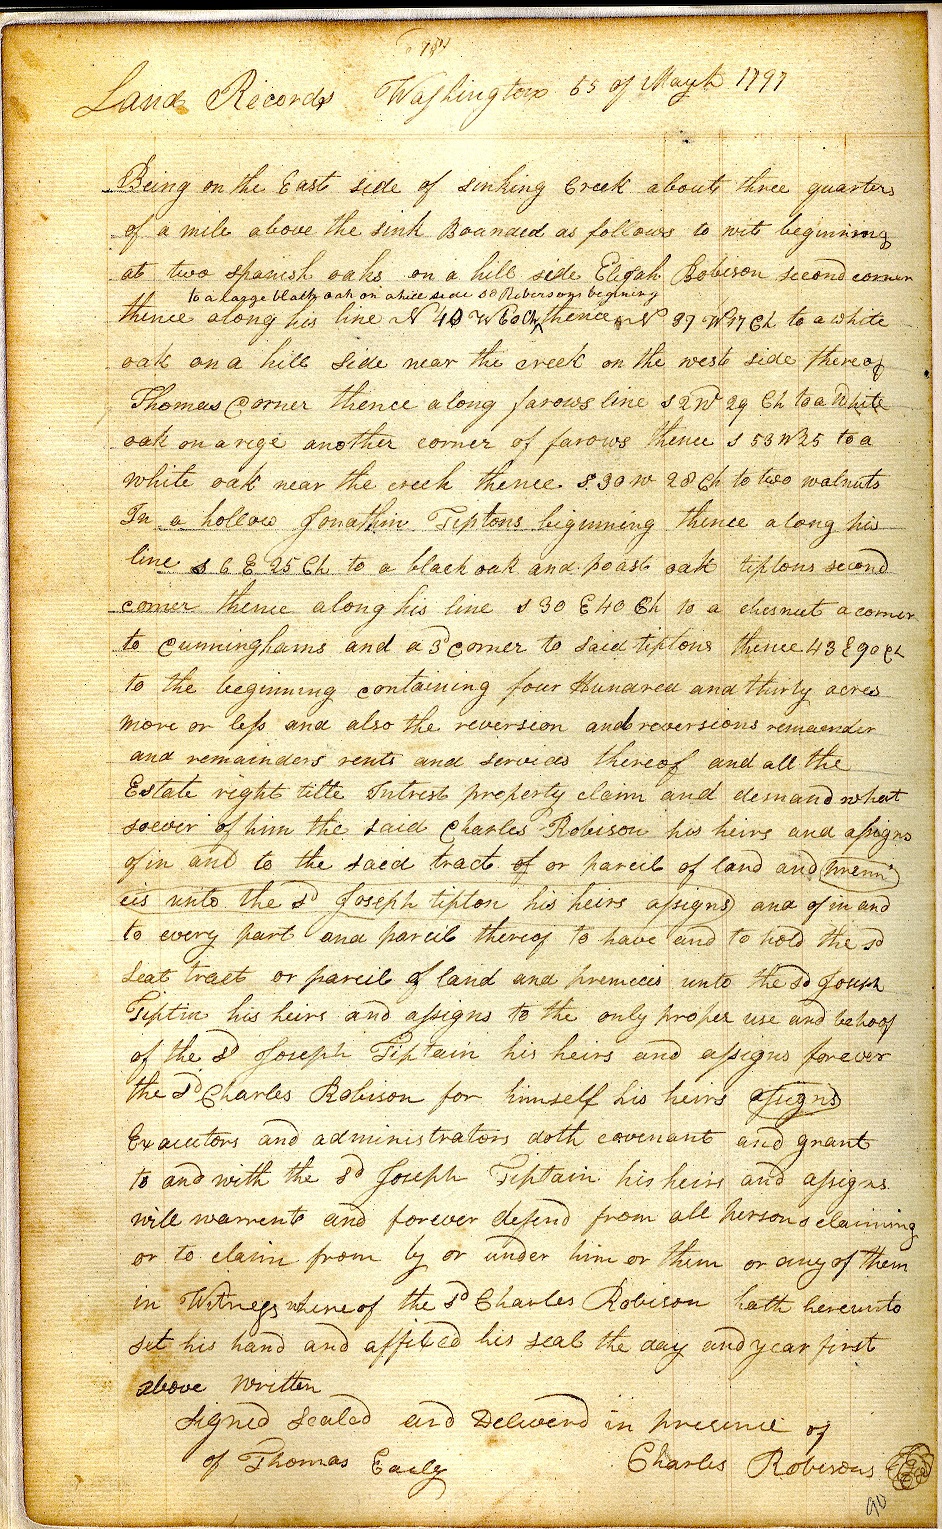 Land Records Washington 65 of May 1797
Being on the East side of sinking Creek about three quarters
of a mile above the sink Bounded as follows to wit beginning
at two spanish oaks on a hill side Elijah Robison second corner
to a large black oak on a hill side sd Robersons begining
thence along his line N 40 W 60 Ch thence N 37 W 47 Ch to a white
oak on a hill side near the creek on the west side thereof
Thomas Corner thence along farows line S 2 W 29 Ch to a White
oak on a rige another corner of farows thence S 53 W 25 to a
white oak near the creek thence S 30 W 28 Ch to two walnuts
In a hollow Jonathin Tiptons biginning thence along his
line S 6 E 25 Ch to a black oak and poast oak tiptons second
corner thence along his line S 30 E 40 Ch to a chesnut a corner
to Cunninghams and a 3d corner to said tiptons thence 43 E 90 Ch
to the beginning containing four Hundred and thirty acres
more or less and also the reversion and reversions remaender
and remainders rents and servicis thereof and all the
Estate right titte Intrest property claim and demand what
soever of him the said Charles Robison his heirs and assigns
of in and to the saed tract of or parcil of land and premi
cis unto the sd Joseph tipton his heirs assigns and of in and
to every part and parcil thereof to have and to hold the sd
seat tract or parcil of land and premicis unto the sd Joseph
Tiptin his heirs and assigns to the only proper use and behoof
of the sd Joseph Tiptain his heirs and assigns forever
the sd Charles Robison for himself his heirs assigns
Exacutors and administrators doth covenant and grant
to and with the sd Joseph Tiptain his heirs and assigns
will warrent and forever defend from all persons claiming
or to claim from by or under him or them or any of them
in Witness whereof the sd Charles Robison hath hereunto
set his hand and affixed his seal the day and year first
above written
signed sealed and Deliverd in presence of
of Thomas Early Charles Robersons
90